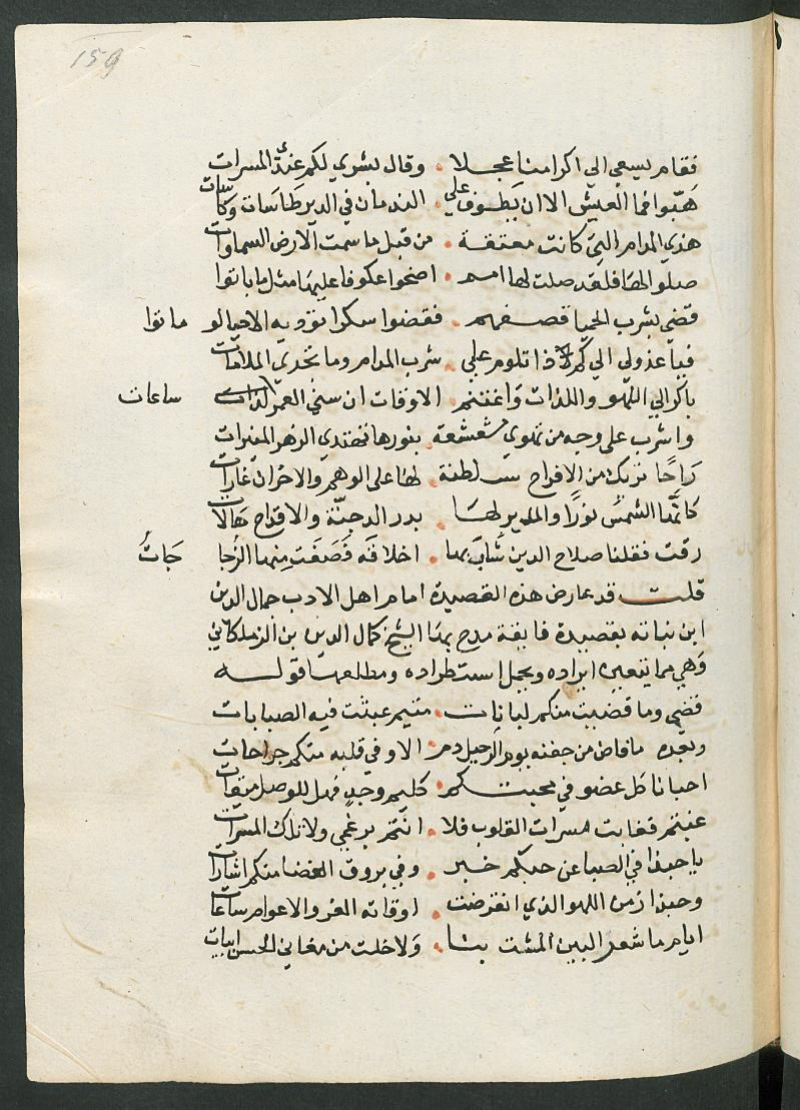 159
فقام يسعي الي اكرامنا عجلا . وقال بشري لكم عندي المسرات
هبوا فما العيش الا ان يطوف علي . الندمان في الدير طاسات وكاسات
هذي المدام التي كانت معتقة . من قبل ما سمت الارض السماوات
صلوا لها فلقد صلت لها امم . اضحوا عكوفا عليها مثل ما باتوا
قضي بشرب الحميا قصفهم . فقضوا سكرا نؤديه الاحيا لو ماتوا
فيا عذولي الي كم ذا تلوم علي . شرب المدام وما تجدي الملامات
باكر الي اللهو واللذات واغتنم . الاوقات ان سني العمر ساعات
واشرب علي وجه من تهوي مشعشعة . بنورها تهتدي الزهر المنيرات
راحا تريك من الافراح سلطنة . لها علي الوهم والاحزان غارات
كانها الشمس نورا والمدير لها . بدر الدجنة والاقداح هالات
رقت فقلنا صلاح الدين شاب بها . اخلاقه فصفت منها الزجاجات
قلت قد عارض هذه القصيدة امام اهل الادب جمال الدين
ابن نباته بقصيدة فايقة مدح بها الشيخ كمال الدين بن الزملكاني
وهي مما يتعين ايراده ويجمل استطراده ومطلعها قوله
قضي وما قضيت منكم لبانات . متيم عبثت فيه الصبابات
وبعده ما فاض من جفنه يوم الرحيل دم . الا وفي قلبه منكم جراحات
احبابنا كل عضو في محبتكم . كليم وجد فهل للوصل ميقات
غبتم فغابت مسرات القلوب فلا . انتم برغمي ولا تلك المسرات
يا حبذا في الصبا عن حبكم خبر . وفي بروق الغضا منكم اشارات
وحبذا زمن اللهو الذي انقرضت . اوقاته الغر والاعوام ساعات
ايام ما شعر البين المشت بنا . ولا خلت من مغاني الحسن ابيات